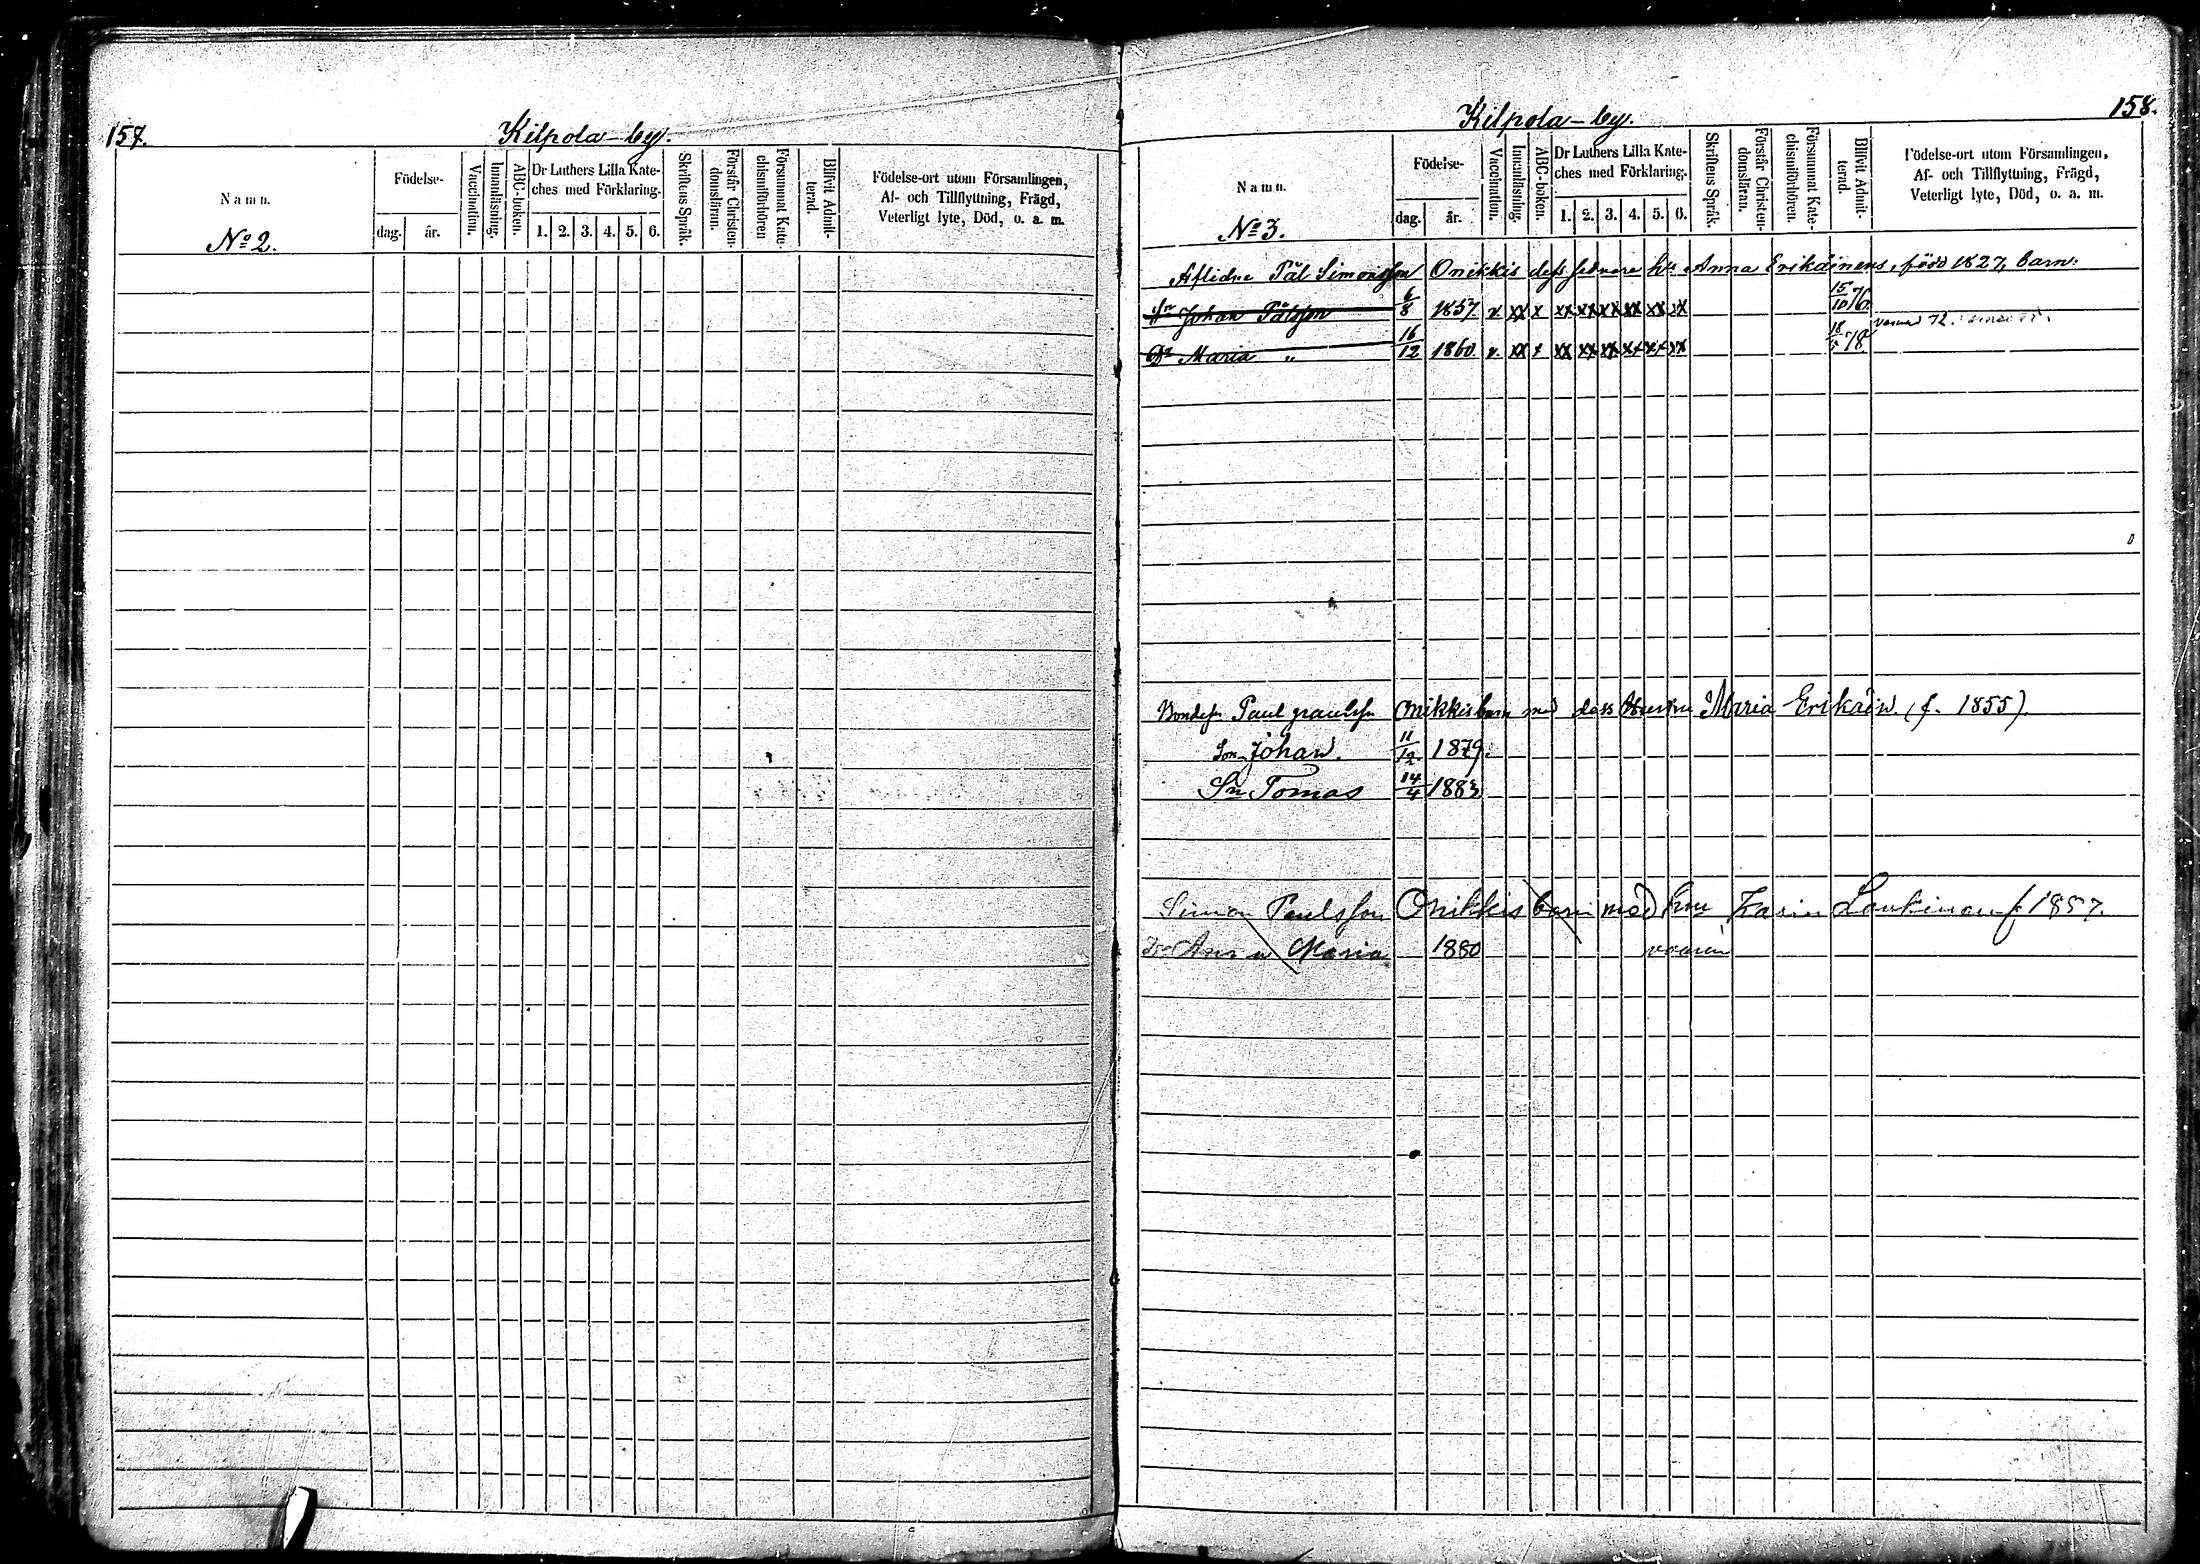 157.
Kilpola-by.
Namn.
Födelse-
dag.
år.
Vaccination.
Innanläsning.
ABC-boken.
Dr Luthers Lilla Kate-
ches med Förklaring.
1. 2. 3. 4. 5. 6.
Skriftens Språk.
Förstår Christen-
domsläran.
Försummat Kate-
chismiförhören
Blifvit Admit-
terad.
Födelse-ort utom Församlingen,
Af- och Tillflyttning, Frägd,
Veterligt lyte, Död, o. a. m.
No 2.
158.
Kilpola-by.
Namn.
Födelse-
dag.
år.
Vaccination.
Innanläsning.
ABC-boken.
Dr Luthers Lilla Kate-
ches med Förklaring.
1. 2. 3. 4. 5. 6.
Skriftens Språk.
Förstår Christen-
domsläran.
Försummat Kate-
chismiförhören.
Blifvit Admit-
terad.
Födelse-ort utom Församlingen,
Af- och Tillflyttning, Frägd,
Veterligt lyte, Död, o. a. m.
No 3.
Aflidne Pål Simonsson Onikkis dess sednare hu Anna Erikäinens, född 1827, barn:
Sn Johan Pålsson 6/8 1857 v xx x xx xx xx xx xx xx 15/10 76.
Dr Maria " 16/12 1860 v. xx x xx xx xx xx xx xx 18/5 78
Bondes: Paul Paulss: Onikkis barn med dess Hustru Maria Erikäin. (f. 1855).
Son Johan. 11/12 1879.
Sn Tomas 14/4 1883
Simon Paulsson Onikkis barn med hru Karin Loukinen f. 1857.
Dr Anna Maria 1880